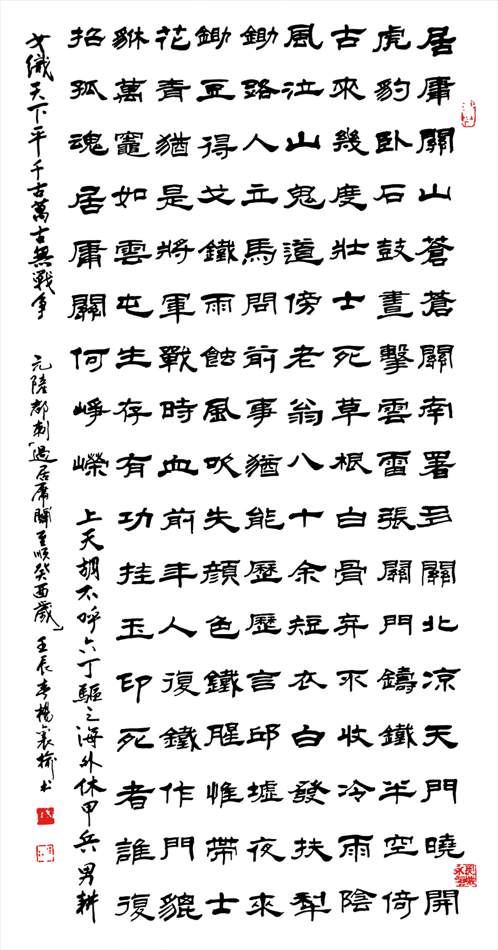 居庸關山蒼蒼關南署多關北凉天門曉開
虎豹卧石鼓晝擊雲雷張關門鑄鐵半空倚
古來幾度壯士死草根白骨弃不收冷雨陰
風泣山鬼道傍老翁八十余短衣白發扶犁
鋤路人立馬問前事猶能歷歷言邱墟夜來
鋤豆得戈鐵雨蝕風吹失顏色鐵腥惟帶士
花青猶是將軍戰時血前年人復鐵作門貔
貅萬竈如雲屯生存有功挂玉印死者誰復
招孤魂居庸關何崢嶸上天胡不呼六丁驅之海外休甲兵男耕
女織天下平千古萬古無戰争 元薩都刺「過居庸關至順癸酉歲」壬辰春楊襄榆书